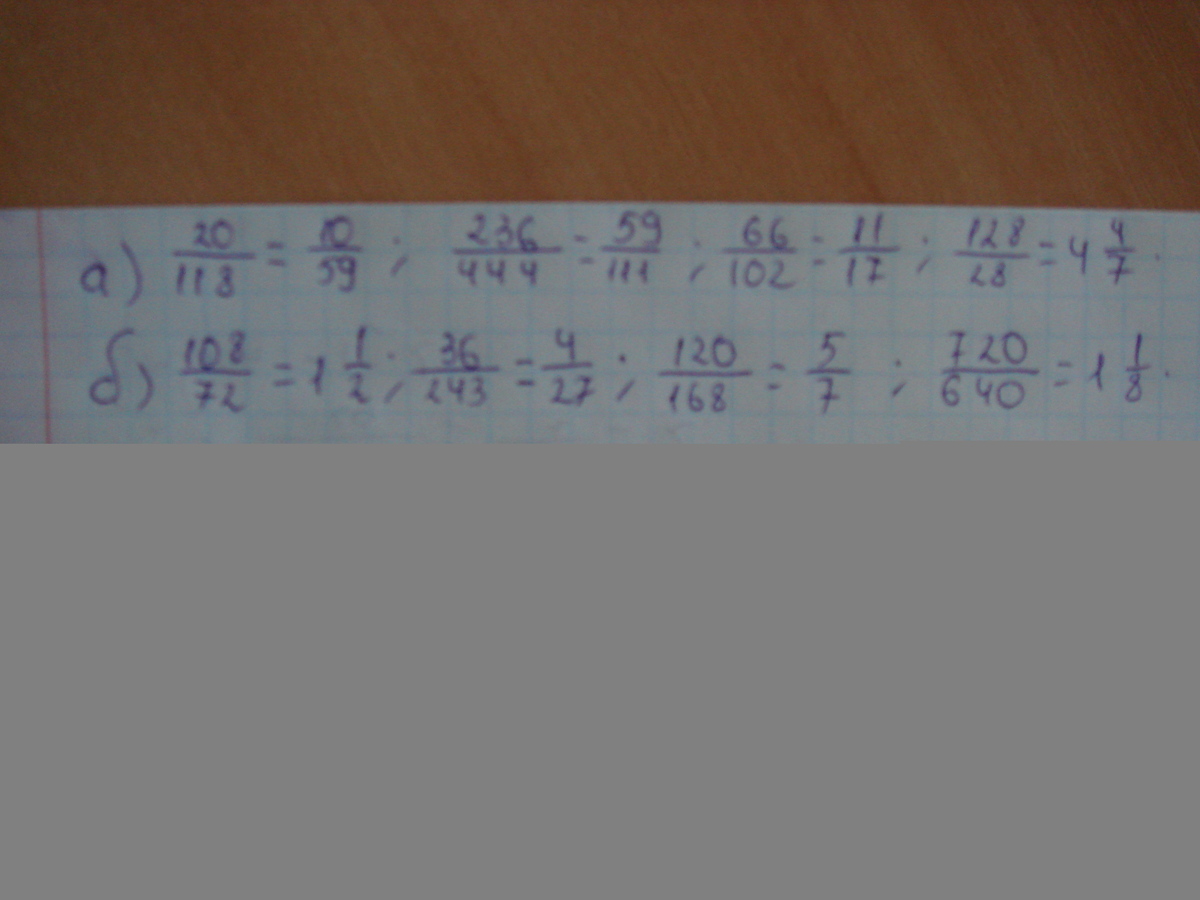 а) 20/118 = 10/59 ; 236/444 = 59/111 ; 66/102 = 11/17 ; 128/28 = 4 4/7 .
б) 108/72 = 1 1/2 ; 36/243 = 4/27 ; 120/168 = 5/7 ; 720/640 = 1 1/8 .